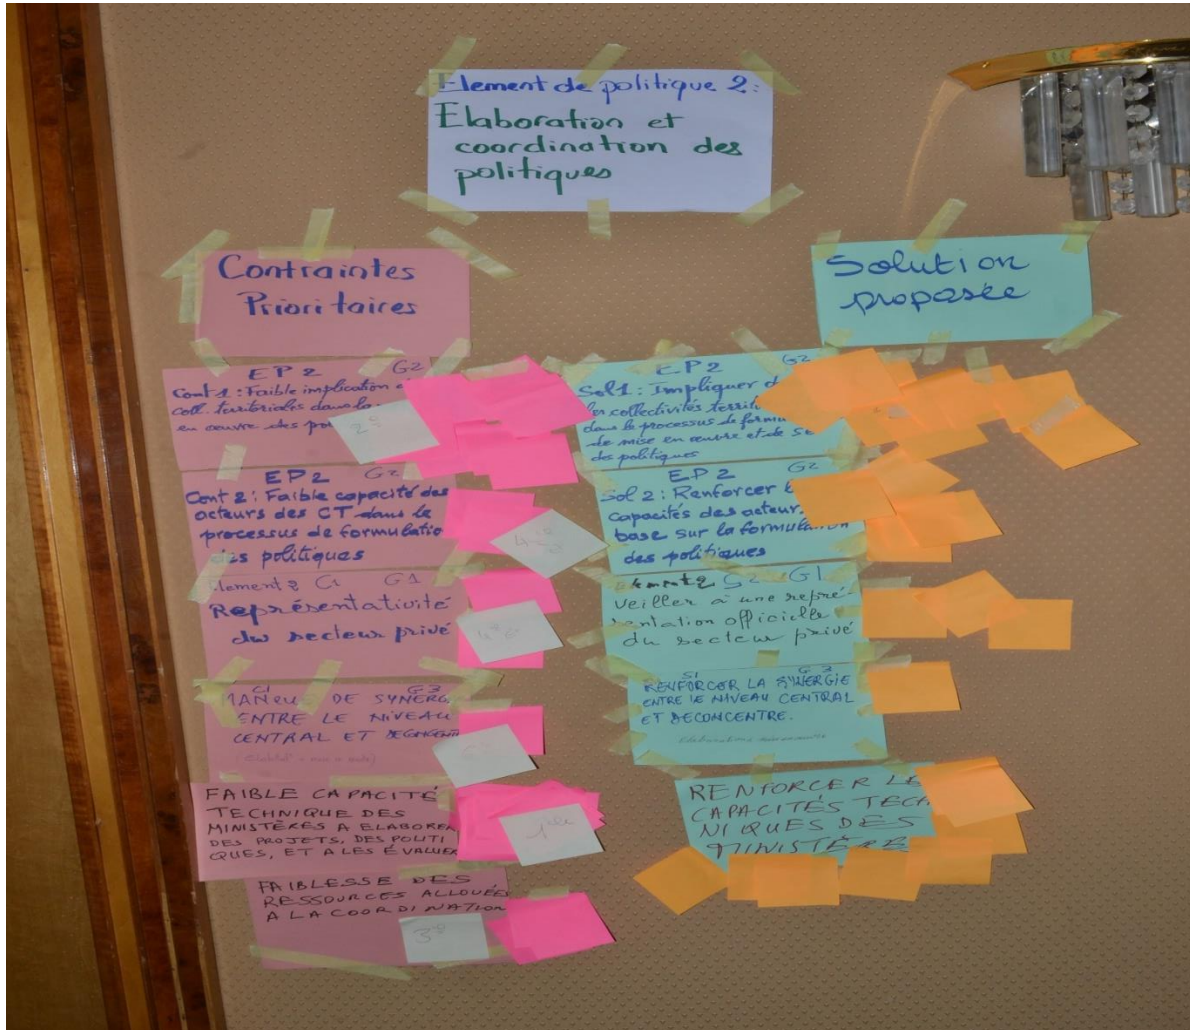 Element de politique 2:
Elaboration et
coordination des
politiques
Contraintes
Prioritaires
Solution
proposée
EP2 G2
Cont 1: Faible implication
coll. territoriales dans la
en œuvre des
2e
EP2 G2
Cont 2: Faible capacité des
acteurs des CT dans le
processus de formulatio
des politiques
4e
Element 2 C1 G1
Représentativité
du secteur privé
4e
C1 G3
MANQU DE SYNERG
ENTRE LE NIVEAU
CENTRAL ET
FAIBLE CAPACITÉ
TECHNIQUE DES
MINISTÈRES A ELABORER
DES PROJETS, DES POLITI
QUES, ET A LES ÉVALUER
FAIBLESSE DES
RESSOURCES ALLOUÉES
A LA COORDINATION
3e
EP2 G2
Sol1: Impliquer
les collectivités territ
dans le processus de formu
de mise en œuvre et de
des politiques
EP2 G2
Sol 2: Renforcer
capacités des acteur
base sur la formulation
des politiques
G1
Veiller à une repré-
sentation officielle
du secteur privé
S1 G3
RENFORCER LA SYNERGIE
ENTRE LE NIVEAU CENTRAL
ET DECONCENTRE.
RENFORCER LE
CAPACITÉS TECH
NIQUES DES
MINISTÈRE